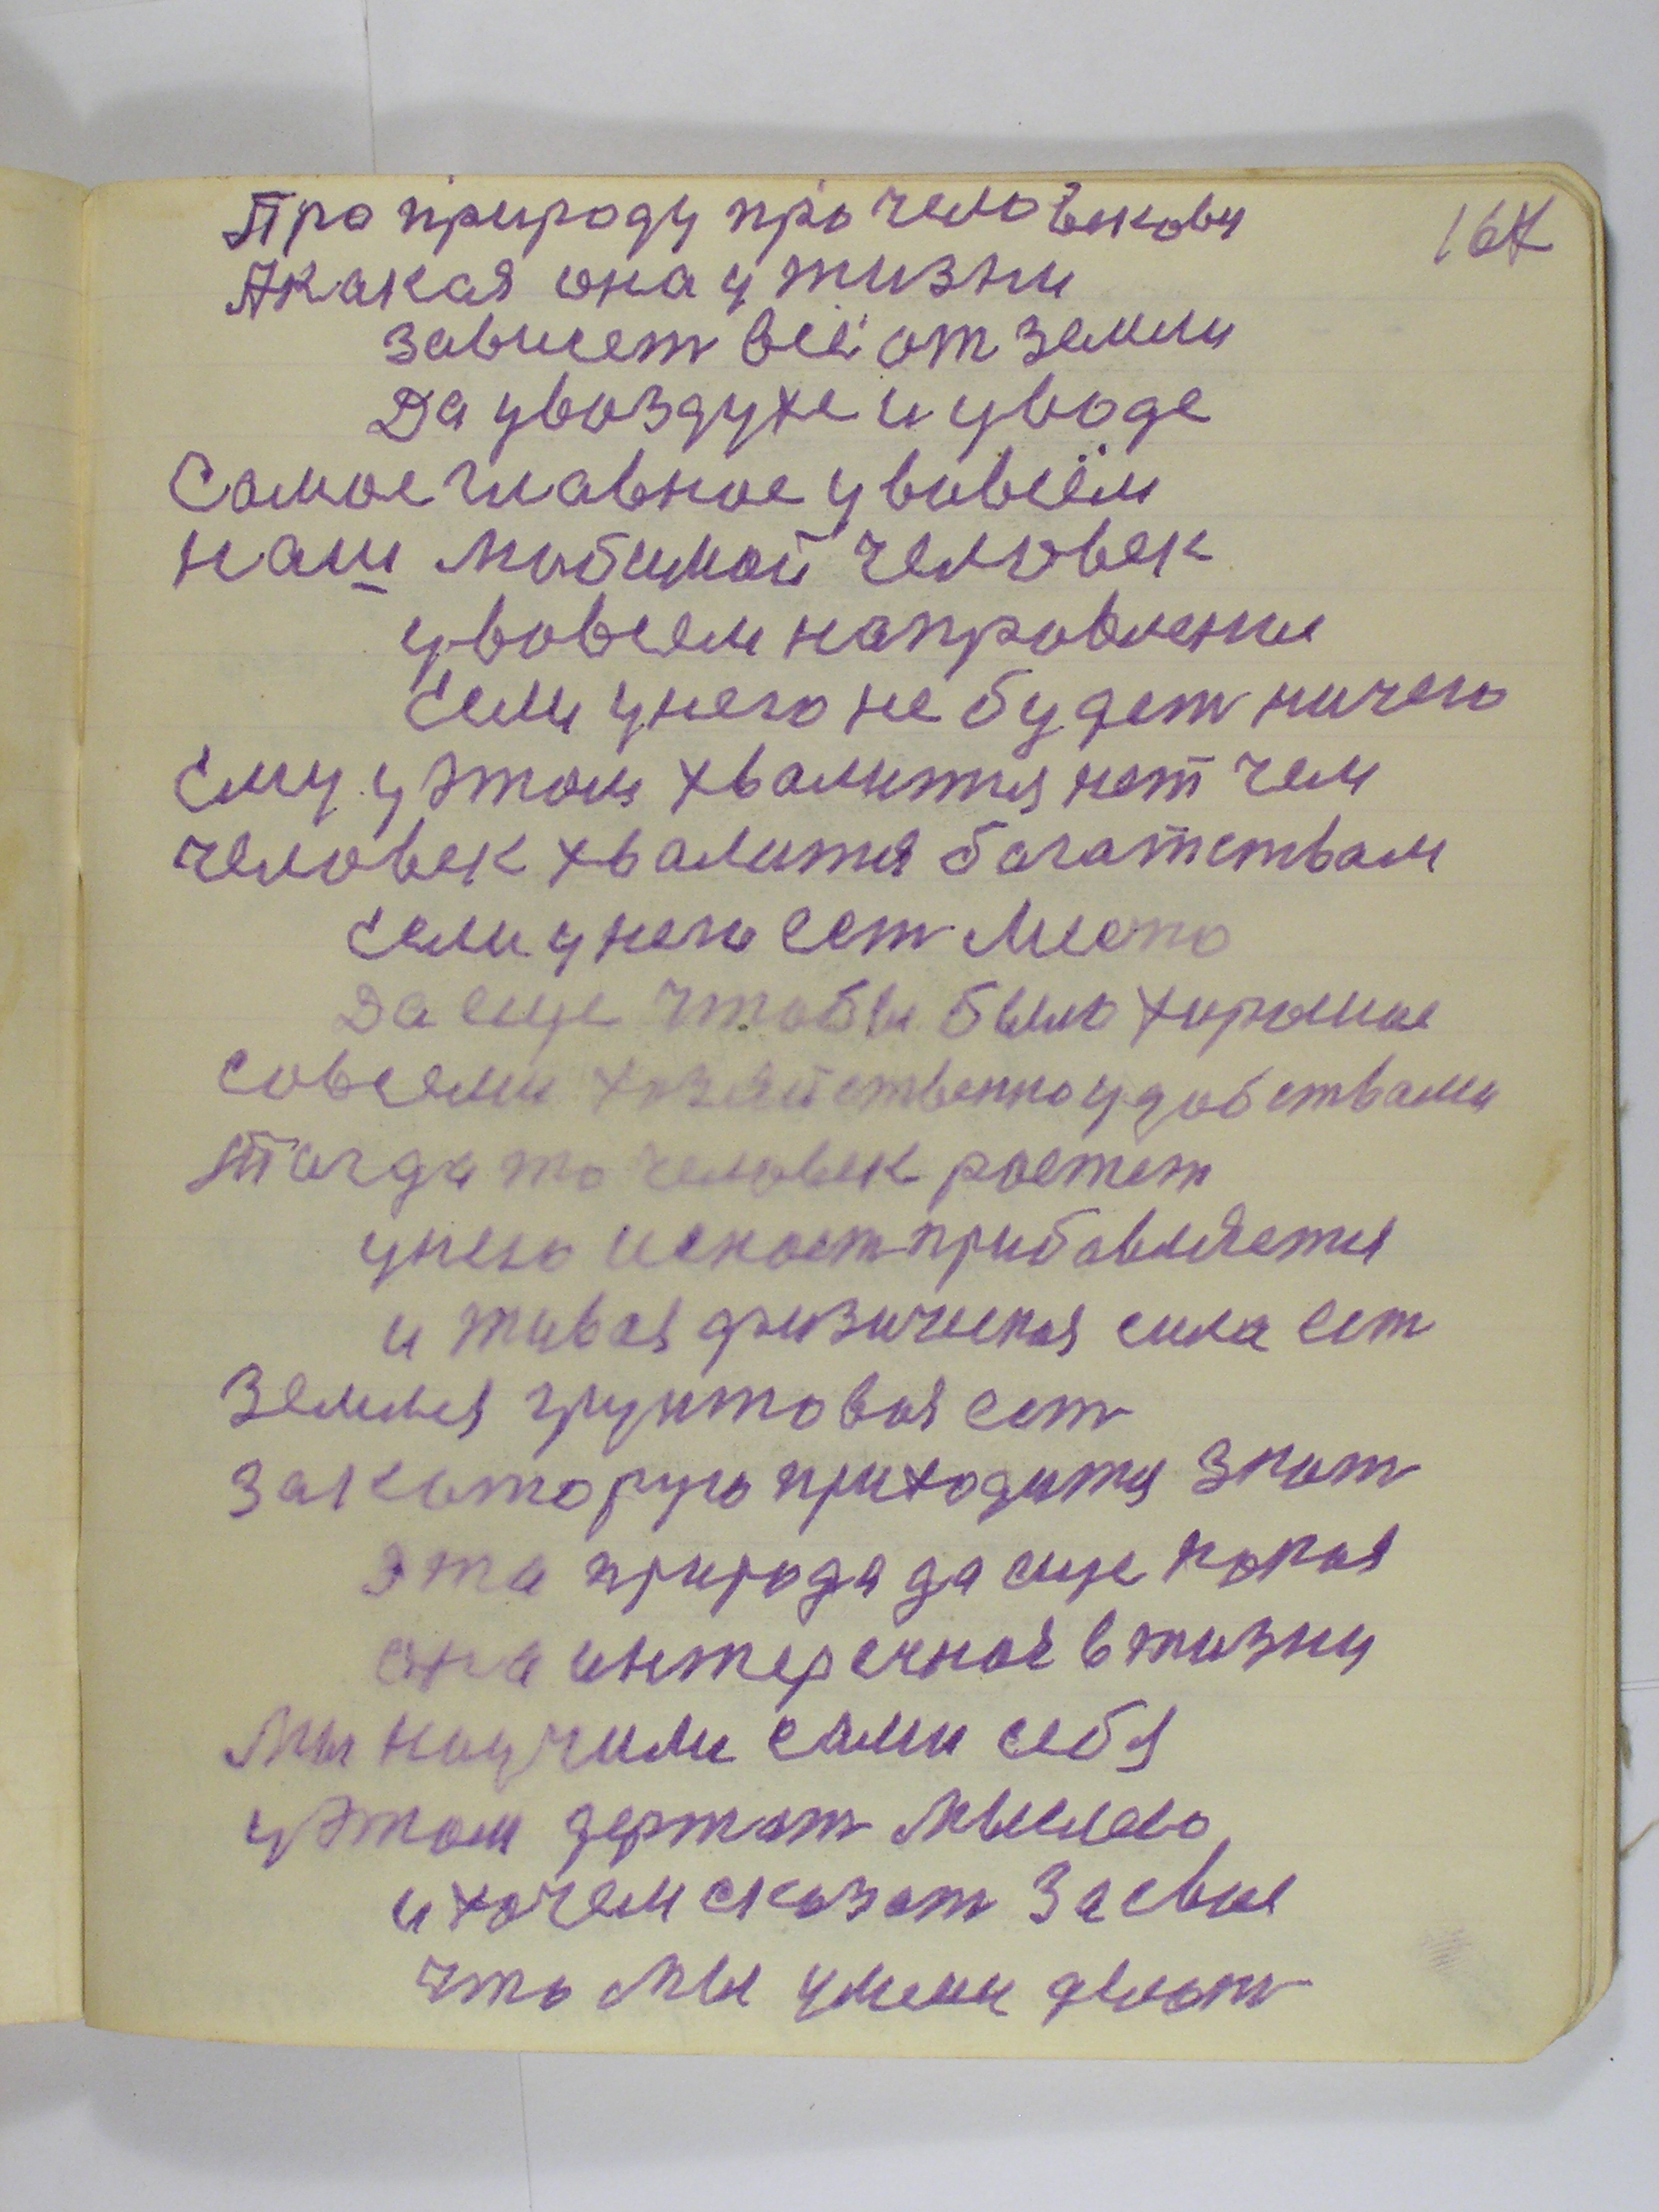 Про природу про человекову
А какая она у жизни
зависет всё от земли
Да у воздухе и у воде
Самое главное у вовсём
наш любимой человек
у вовсем направлении
Если у него не будет ничего
Ему у этом хвалится нет чем
человек хвалится богатствам
Если у него ест место
Да еще чтобы было хорошое
Совсеми хозяйственно удобствами
Тагда то человек растет
у него ясност прибавляется
и живая физическая сила ест
Земля грунтовая ест
За каторую приходится знат
эта природа да еще какая
она интерсная в жизни
Мы научили сами себя
у этом держат мыслею
и хочем сказат за свое
что мы умели делат